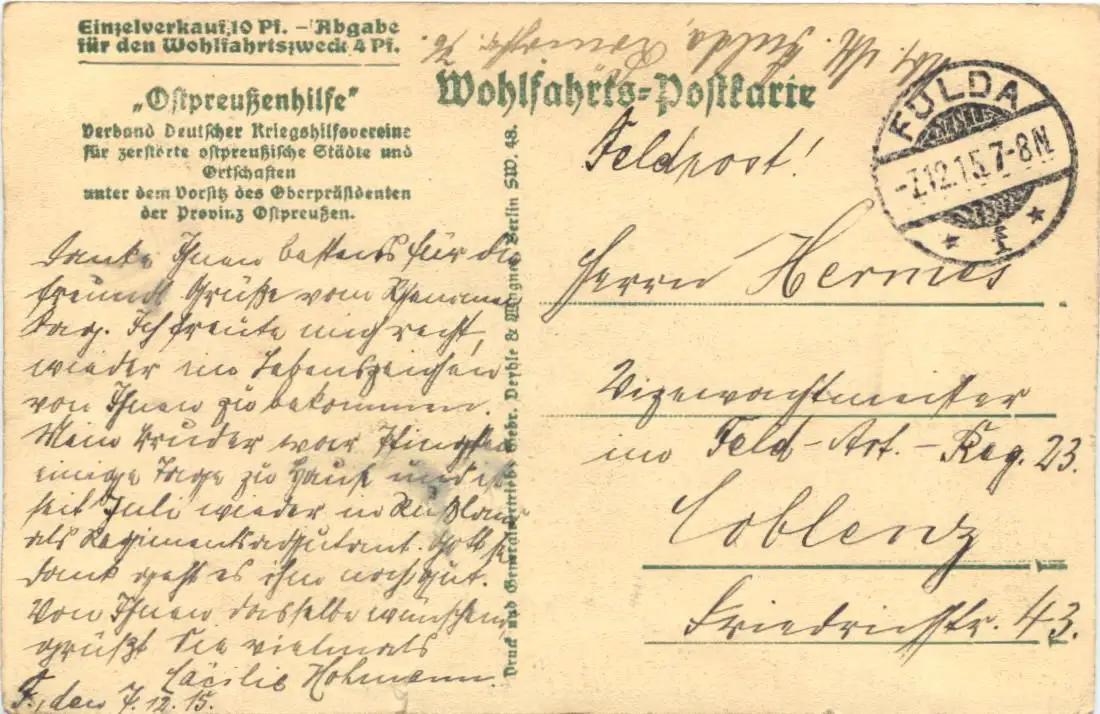 Einzelverkauf 10 Pf. – Abgabe
für den Wohlfahrtszweck 4 Pf.
„Ostpreußenhilfe“
Verband Deutscher Kriegshilfsvereine
für zerstörte ostpreußische Städte und
Ortschaften
unter dem Vorsitz des Oberpräsidenten
der Provinz Ostpreußen.
Danke Ihnen bestens für die
freundl. Grüße vom
Ich freute mich recht,
wieder ein Lebenszeichen
von Ihnen zu bekommen.
Mein Bruder war Pfingsten
einige Tage zu Hause und ist
seit Juli wieder in Rußland
als Regimentsadjutant. Gott sei
Dank geht es ihm noch gut.
Von Ihnen dasselbe wünschend,
grüßt Sie vielmals
Cäcilie Hohmann.
F., den 7.12.15.
Druck und Generalvertrieb: Gebr. Deyhle & Wagner, Berlin SW. 48.
Fulda
Wohlfahrts-Postkarte
Feldpost!
FULDA
-7.12.15.7-8N
* 1 *
Herrn Hermes
Vizewachtmeister
im Feld-Art.-Reg. 23.
Coblenz
Friedrichstr. 43.